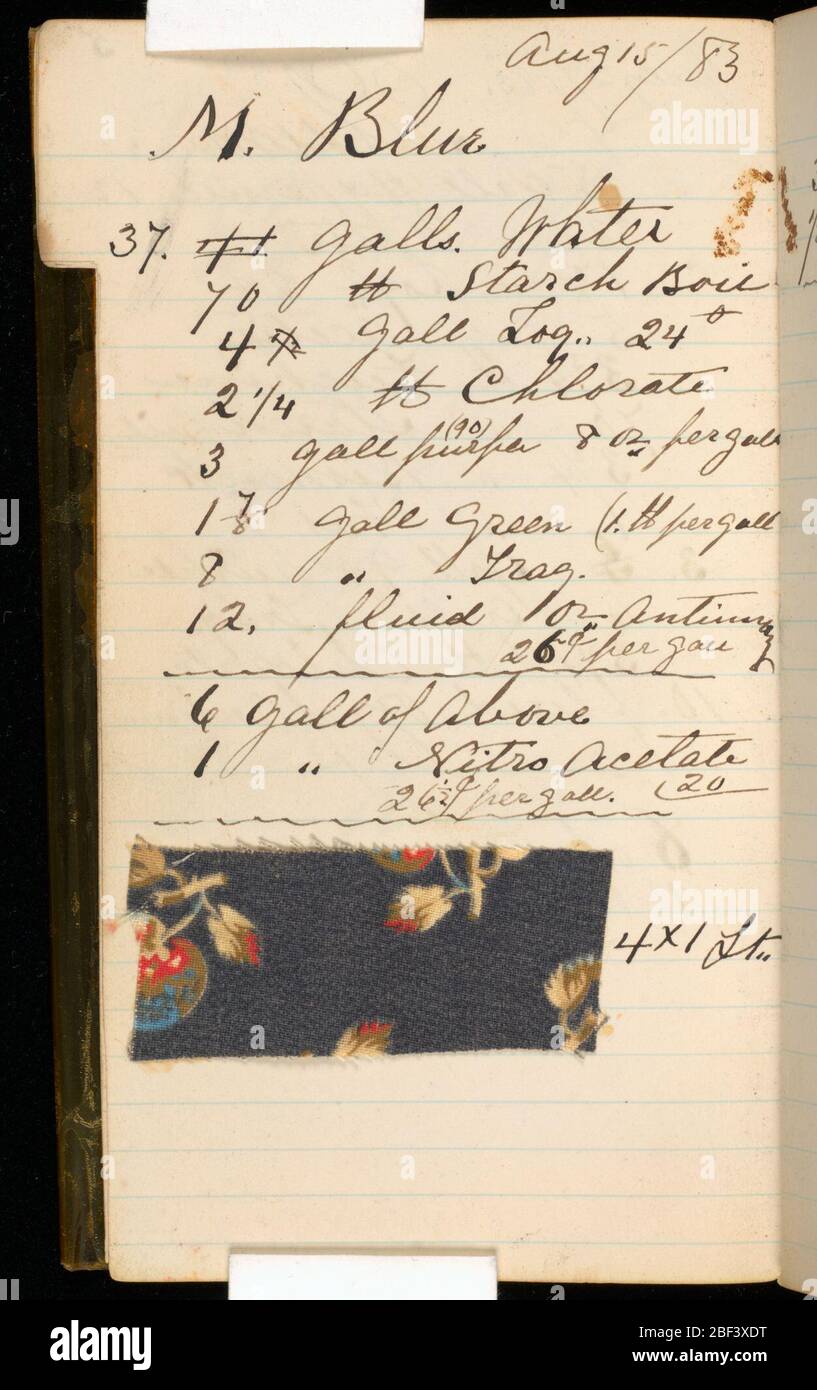 Aug 15/83
M. Blue
37. galls. Water
70 ℔ Starch Boil
4 gall Log.. 24°
2 1/4 ℔ Chlorate
3 gall (90) 8 oz per gall
1 7/8 gall Green (1. ℔ per gall
8 " Trag.
12. fluid oz Antimony
per gall
6 gall of Above
1 " Nitro Acetate
per gall. (20
4x1 St..
alamy
Image ID: 2BF3XDT
www.alamy.com